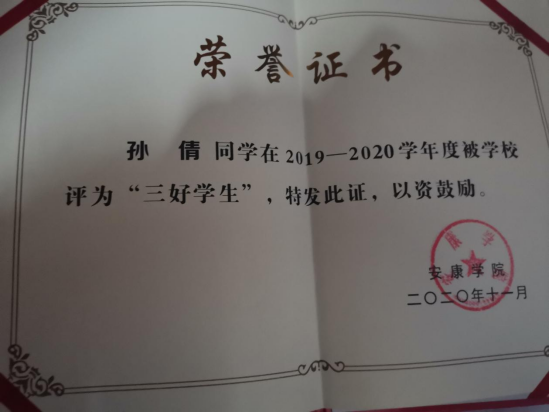 荣誉证书
孙 倩 同学在2019—2020学年度被学校
评为“三好学生”，特发此证，以资鼓励。
安康学院
安康学院
二〇二〇年十一月